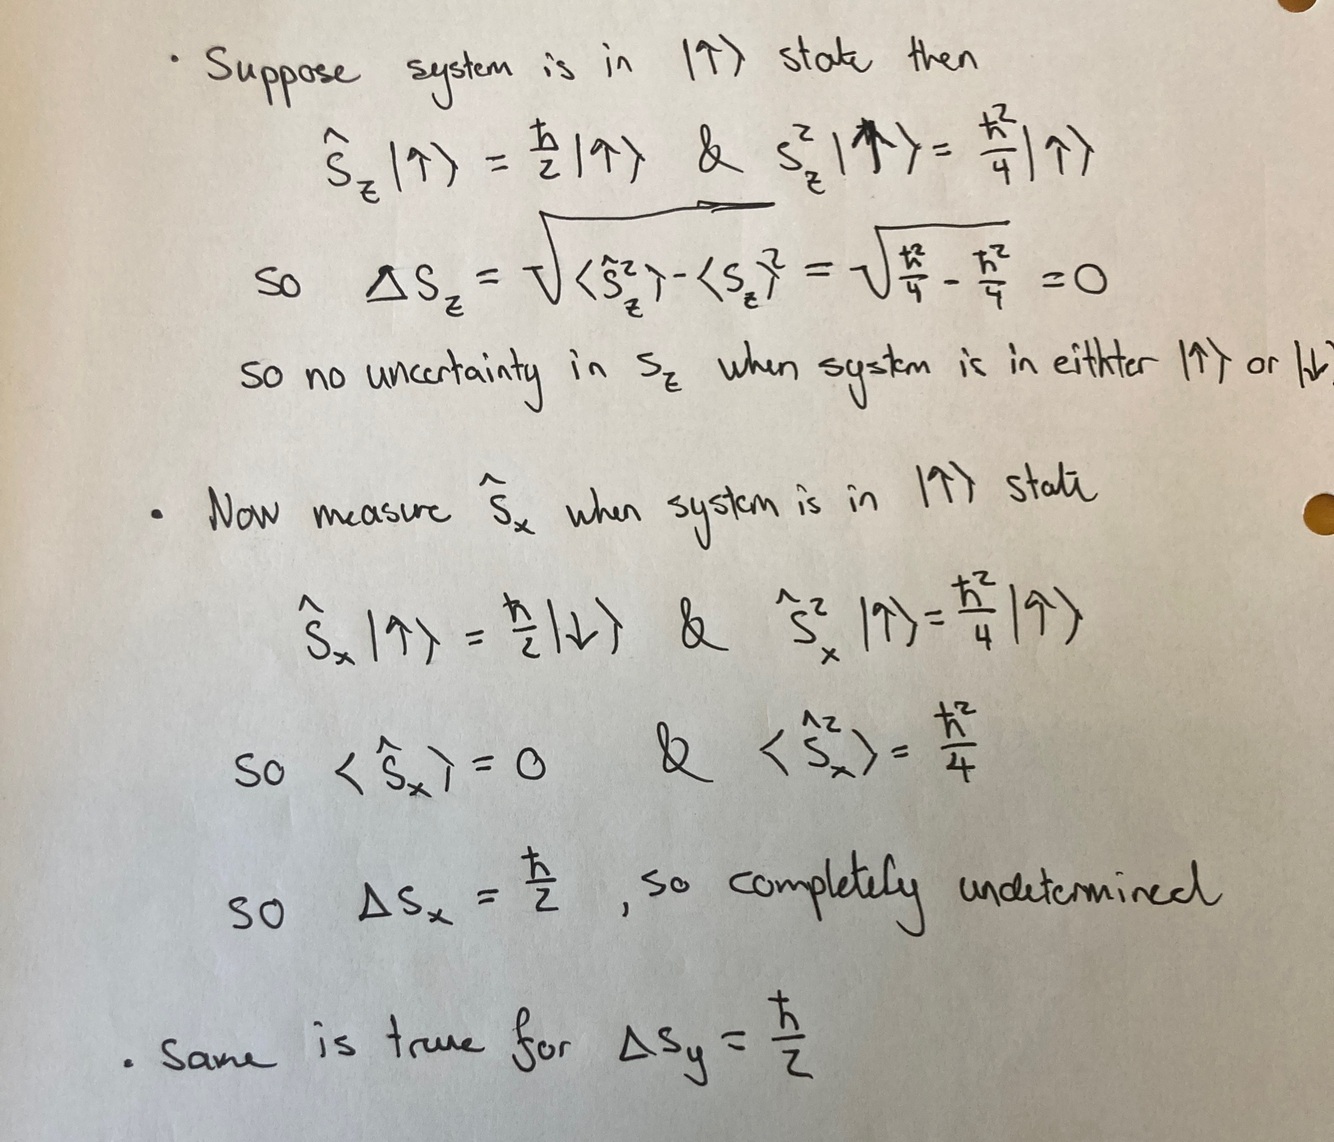 · Suppose system is in |↑⟩ state then
Ŝ_z |↑⟩ = ħ/2 |↑⟩ & S_z² |↑⟩ = ħ²/4 |↑⟩
so ΔS_z = √(⟨Ŝ_z²⟩ - ⟨S_z⟩²) = √(ħ²/4 - ħ²/4) = 0
so no uncertainty in S_z when system is in eithter |↑⟩ or |↓⟩
· Now measure Ŝ_x when system is in |↑⟩ state
Ŝ_x |↑⟩ = ħ/2 |↓⟩ & Ŝ_x² |↑⟩ = ħ²/4 |↑⟩
so ⟨Ŝ_x⟩ = 0 & ⟨Ŝ_x²⟩ = ħ²/4
so ΔS_x = ħ/2 , so completely undetermined
· Same is true for ΔS_y = ħ/2